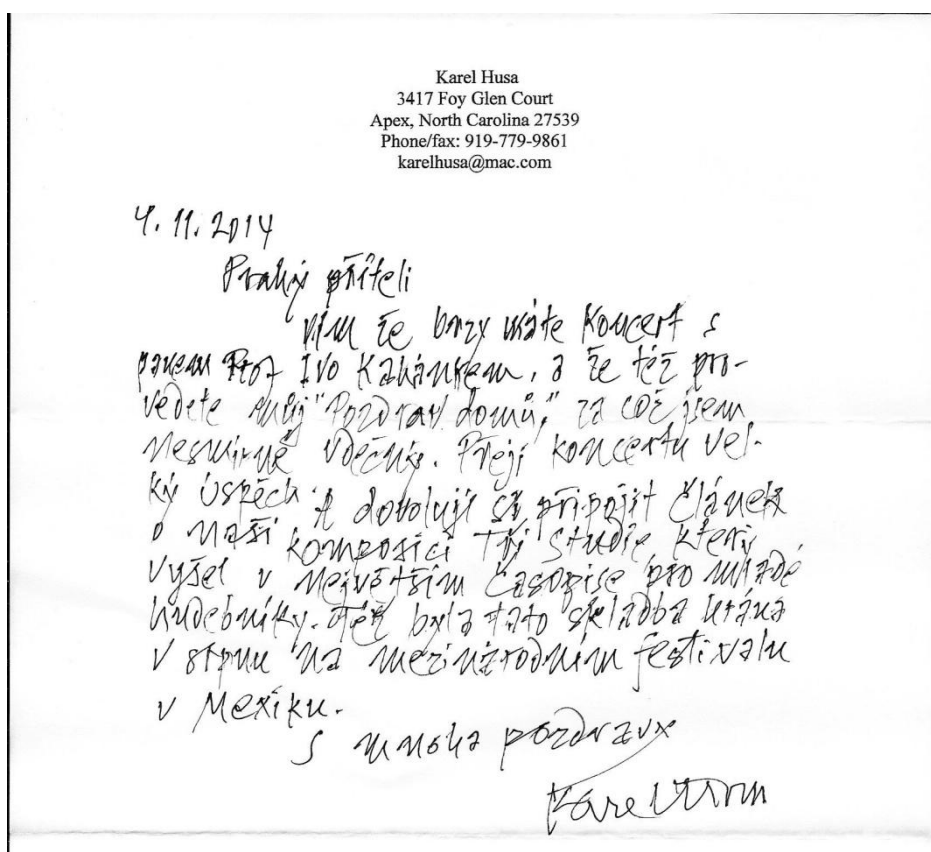 Karel Husa
3417 Foy Glen Court
Apex, North Carolina 27539
Phone/fax: 919-779-9861
karelhusa@mac.com
4. 11. 2014
Drahý příteli
vím že brzy máte koncert s
panem Prof Ivo Kahánkem, a že též pro-
vedete můj "Pozdrav domů," za což jsem
nesmírně vděčný. Přeji koncertu vel-
ký úspěch. A dovoluji si připojit článek
o naší komposici Tři studie který
vyšel v největším časopise pro mladé
hudebníky. Též byla tato skladba hrána
v srpnu na mezinárodním festivalu
v Mexiku.
S mnoha pozdravy
Karel Husa